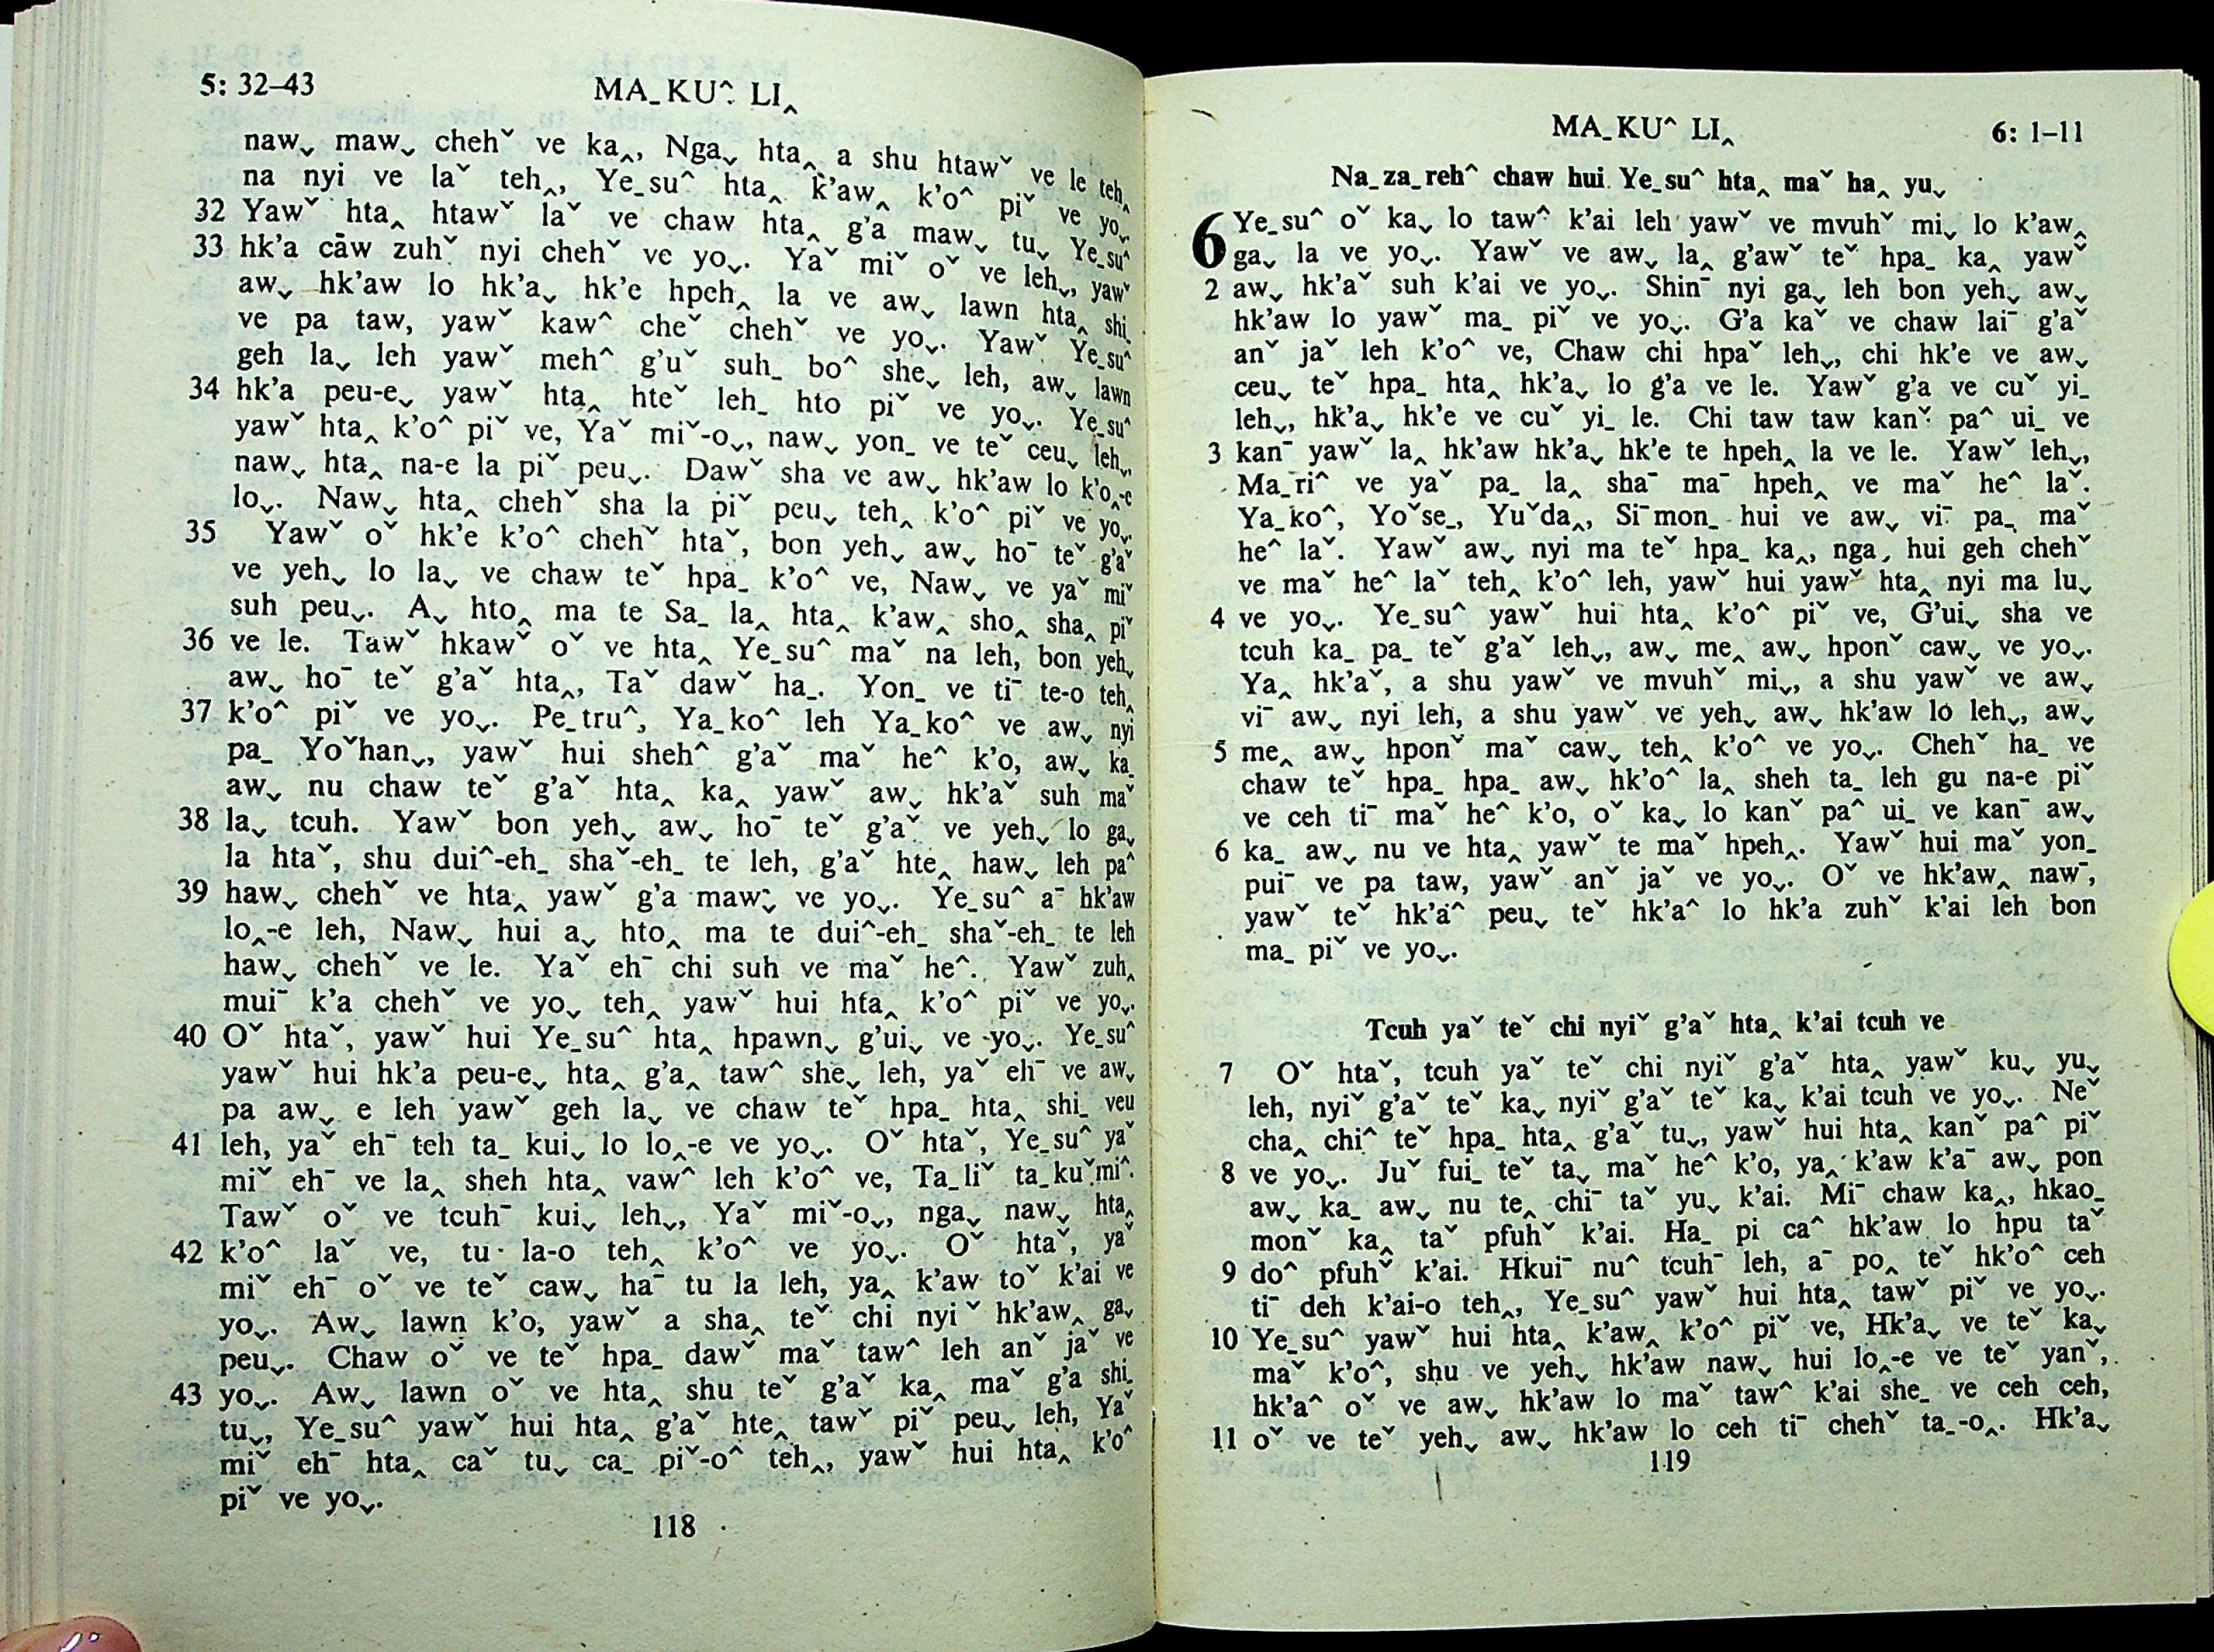 5: 32–43
MA_ KUˆ LI‸
naw⌄ maw⌄ chehˇ ve ka‸, Nga⌄ hta‸ a shu htawˇ ve le teh‸
na nyi ve laˇ teh‸, Ye_suˆ hta‸ k'aw‸ k'oˆ piˇ ve yo⌄.
32 Yawˇ hta‸ htawˇ laˇ ve chaw hta‸ g'a maw⌄ tu⌄ Ye_suˆ
33 hk'a cāw zuhˇ nyi chehˇ ve yo⌄. Yaˇ miˇ oˇ ve leh⌄, yawˇ
aw⌄ hk'aw lo hk'a⌄ hk'e hpeh‸ la ve aw⌄ lawn hta‸ shi_
ve pa taw, yawˇ kawˆ cheˇ chehˇ ve yo⌄. Yawˇ Ye_suˆ
geh la⌄ leh yawˇ mehˆ g'uˇ suh_ boˆ she⌄ leh, aw⌄ lawn
34 hk'a peu-e⌄ yawˇ hta‸ hteˇ leh_ hto piˇ ve yo⌄. Ye_suˆ
yawˇ hta‸ k'oˆ piˇ ve, Yaˇ miˇ-o⌄, naw⌄ yon_ ve teˇ ceu⌄ leh⌄,
naw⌄ hta‸ na-e la piˇ peu⌄. Dawˇ sha ve aw⌄ hk'aw lo k'o‸-e
lo⌄. Naw⌄ hta‸ chehˇ sha la piˇ peu⌄ teh‸ k'oˆ piˇ ve yo⌄.
35 Yawˇ oˇ hk'e k'oˆ chehˇ htaˇ, bon yeh⌄ aw⌄ hoˉ teˇ g'aˇ
ve yeh⌄ lo la⌄ ve chaw teˇ hpa_ k'oˆ ve, Naw⌄ ve yaˇ miˇ
suh peu⌄. A⌄ hto‸ ma te Sa_ la‸ hta‸ k'aw‸ sho‸ sha‸ piˇ
36 ve le. Tawˇ hkawˇ oˇ ve hta‸ Ye_suˆ maˇ na leh, bon yeh⌄
aw⌄ hoˉ teˇ g'aˇ hta‸, Taˇ dawˇ ha_. Yon_ ve tiˉ te-o teh‸
37 k'oˆ piˇ ve yo⌄. Pe_truˆ, Ya_koˆ leh Ya_koˆ ve aw⌄ nyi
pa_ Yoˇhan⌄, yawˇ hui shehˆ g'aˇ maˇ heˆ k'o, aw⌄ ka_
aw⌄ nu chaw teˇ g'aˇ hta‸ ka‸ yawˇ aw⌄ hk'aˇ suh maˇ
38 la⌄ tcuh. Yawˇ bon yeh⌄ aw⌄ hoˉ teˇ g'aˇ ve yeh⌄ lo ga⌄
la htaˇ, shu duiˆ-eh_ shaˇ-eh_ te leh, g'aˇ hte‸ haw⌄ leh paˆ
39 haw⌄ chehˇ ve hta‸ yawˇ g'a maw⌄ ve yo⌄. Ye_suˆ aˉ hk'aw
lo‸-e leh, Naw⌄ hui a⌄ hto‸ ma te duiˆ-eh_ shaˇ-eh_ te leh
haw⌄ chehˇ ve le. Yaˇ ehˉ chi suh ve maˇ heˆ. Yawˇ zuh‸
muiˉ k'a chehˇ ve yo⌄ teh‸ yawˇ hui hta‸ k'oˆ piˇ ve yo⌄.
40 Oˇ htaˇ, yawˇ hui Ye_suˆ hta‸ hpawn⌄ g'ui⌄ ve yo⌄. Ye_suˆ
yawˇ hui hk'a peu-e⌄ hta‸ g'a‸ tawˆ she⌄ leh, yaˇ ehˉ ve aw⌄
pa aw⌄ e leh yawˇ geh la⌄ ve chaw teˇ hpa_ hta‸ shi_ veu
41 leh, yaˇ ehˉ teh ta_ kui⌄ lo lo‸-e ve yo⌄. Oˇ htaˇ, Ye_suˆ yaˇ
miˇ ehˉ ve la‸ sheh hta‸ vawˆ leh k'oˆ ve, Ta_liˇ ta_kuˇmiˆ.
Tawˇ oˇ ve tcuhˉ kui⌄ leh⌄, Yaˇ miˇ-o⌄, nga⌄ naw⌄ hta‸
42 k'oˆ laˇ ve, tu la-o teh‸ k'oˆ ve yo⌄. Oˇ htaˇ, yaˇ
miˇ ehˉ oˇ ve teˇ caw⌄ haˉ tu la leh, ya‸ k'aw toˇ k'ai ve
yo⌄. Aw⌄ lawn k'o, yawˇ a sha‸ teˇ chi nyiˇ hk'aw‸ ga⌄
peu⌄. Chaw oˇ ve teˇ hpa_ dawˇ maˇ tawˆ leh anˇ jaˇ ve
43 yo⌄. Aw⌄ lawn oˇ ve hta‸ shu teˇ g'aˇ ka‸ maˇ g'a shi_
tu⌄, Ye_suˆ yawˇ hui hta‸ g'aˇ hte‸ tawˇ piˇ peu⌄ leh, Yaˇ
miˇ ehˉ hta‸ caˇ tu⌄ ca_ piˇ-oˆ teh‸, yawˇ hui hta‸ k'oˆ
piˇ ve yo⌄.
118
MA_KUˆ LI‸
6: 1–11
Na_za_rehˆ chaw hui Ye_suˆ hta‸ maˇ ha‸ yu⌄
6 Ye_suˆ oˇ ka⌄ lo tawˆ k'ai leh yawˇ ve mvuhˇ mi⌄ lo k'aw‸
ga⌄ la ve yo⌄. Yawˇ ve aw⌄ la‸ g'awˇ teˇ hpa_ ka‸ yawˇ
2 aw⌄ hk'aˇ suh k'ai ve yo⌄. Shinˉ nyi ga⌄ leh bon yeh⌄ aw⌄
hk'aw lo yawˇ ma_ piˇ ve yo⌄. G'a kaˇ ve chaw laiˉ g'aˇ
anˇ jaˇ leh k'oˆ ve, Chaw chi hpaˇ leh⌄, chi hk'e ve aw⌄
ceu⌄ teˇ hpa_ hta‸ hk'a⌄ lo g'a ve le. Yawˇ g'a ve cuˇ yi_
leh⌄, hk'a⌄ hk'e ve cuˇ yi_ le. Chi taw taw kanˇ paˆ ui_ ve
3 kanˉ yawˇ la‸ hk'aw hk'a⌄ hk'e te hpeh‸ la ve le. Yawˇ leh⌄,
Ma_riˆ ve yaˇ pa_ la‸ shaˉ maˉ hpeh‸ ve maˇ heˆ laˇ.
Ya_koˆ, Yoˇse_, Yuˇda‸, Siˉmon_ hui ve aw⌄ viˉ pa_ maˇ
heˆ laˇ. Yawˇ aw⌄ nyi ma teˇ hpa_ ka‸, nga⌄ hui geh chehˇ
ve maˇ heˆ laˇ teh‸ k'oˆ leh, yawˇ hui yawˇ hta‸ nyi ma lu⌄
4 ve yo⌄. Ye_suˆ yawˇ hui hta‸ k'oˆ piˇ ve, G'ui⌄ sha ve
tcuh ka_ pa_ teˇ g'aˇ leh⌄, aw⌄ me‸ aw⌄ hponˇ caw⌄ ve yo⌄.
Ya‸ hk'aˇ, a shu yawˇ ve mvuhˇ mi⌄, a shu yawˇ ve aw⌄
viˉ aw⌄ nyi leh, a shu yawˇ ve yeh⌄ aw⌄ hk'aw lo leh⌄, aw⌄
5 me‸ aw⌄ hponˇ maˇ caw⌄ teh‸ k'oˆ ve yo⌄. Chehˇ ha_ ve
chaw teˇ hpa_ hpa_ aw⌄ hk'oˆ la‸ sheh ta_ leh gu na-e piˇ
ve ceh tiˉ maˇ heˆ k'o, oˇ ka⌄ lo kanˇ paˆ ui_ ve kanˉ aw⌄
6 ka_ aw⌄ nu ve hta‸ yawˇ te maˇ hpeh‸. Yawˇ hui maˇ yon_
puiˉ ve pa taw, yawˇ anˇ jaˇ ve yo⌄. Oˇ ve hk'aw‸ nawˉ,
yawˇ teˇ hk'aˆ peu⌄ teˇ hk'aˆ lo hk'a zuhˇ k'ai leh bon
ma_ piˇ ve yo⌄.
Tcuh yaˇ teˇ chi nyiˇ g'aˇ hta‸ k'ai tcuh ve
7 Oˇ htaˇ, tcuh yaˇ teˇ chi nyiˇ g'aˇ hta‸ yawˇ ku⌄ yu⌄
leh, nyiˇ g'aˇ teˇ ka⌄ nyiˇ g'aˇ teˇ ka⌄ k'ai tcuh ve yo⌄. Neˇ
cha‸ chiˆ teˇ hpa_ hta‸ g'aˇ tu⌄, yawˇ hui hta‸ kanˇ paˆ piˇ
8 ve yo⌄. Juˇ fui_ teˇ ta⌄ maˇ heˆ k'o, ya‸ k'aw k'aˉ aw⌄ pon
aw⌄ ka_ aw⌄ nu te‸ chiˉ taˇ yu⌄ k'ai. Miˉ chaw ka‸, hkao_
monˇ ka‸ taˇ pfuhˇ k'ai. Ha_ pi caˆ hk'aw lo hpu taˇ
9 doˆ pfuhˇ k'ai. Hkuiˉ nuˆ tcuhˉ leh, aˉ po‸ teˇ hk'oˆ ceh
tiˉ deh k'ai-o teh‸, Ye_suˆ yawˇ hui hta‸ tawˇ piˇ ve yo⌄.
10 Ye_suˆ yawˇ hui hta‸ k'aw‸ k'oˆ piˇ ve, Hk'a⌄ ve teˇ ka⌄
maˇ k'oˆ, shu ve yeh⌄ hk'aw naw⌄ hui lo‸-e ve teˇ yanˇ,
hk'aˆ oˇ ve aw⌄ hk'aw lo maˇ tawˆ k'ai she_ ve ceh ceh,
11 oˇ ve teˇ yeh⌄ aw⌄ hk'aw lo ceh tiˉ chehˇ ta_-o‸. Hk'a⌄
119